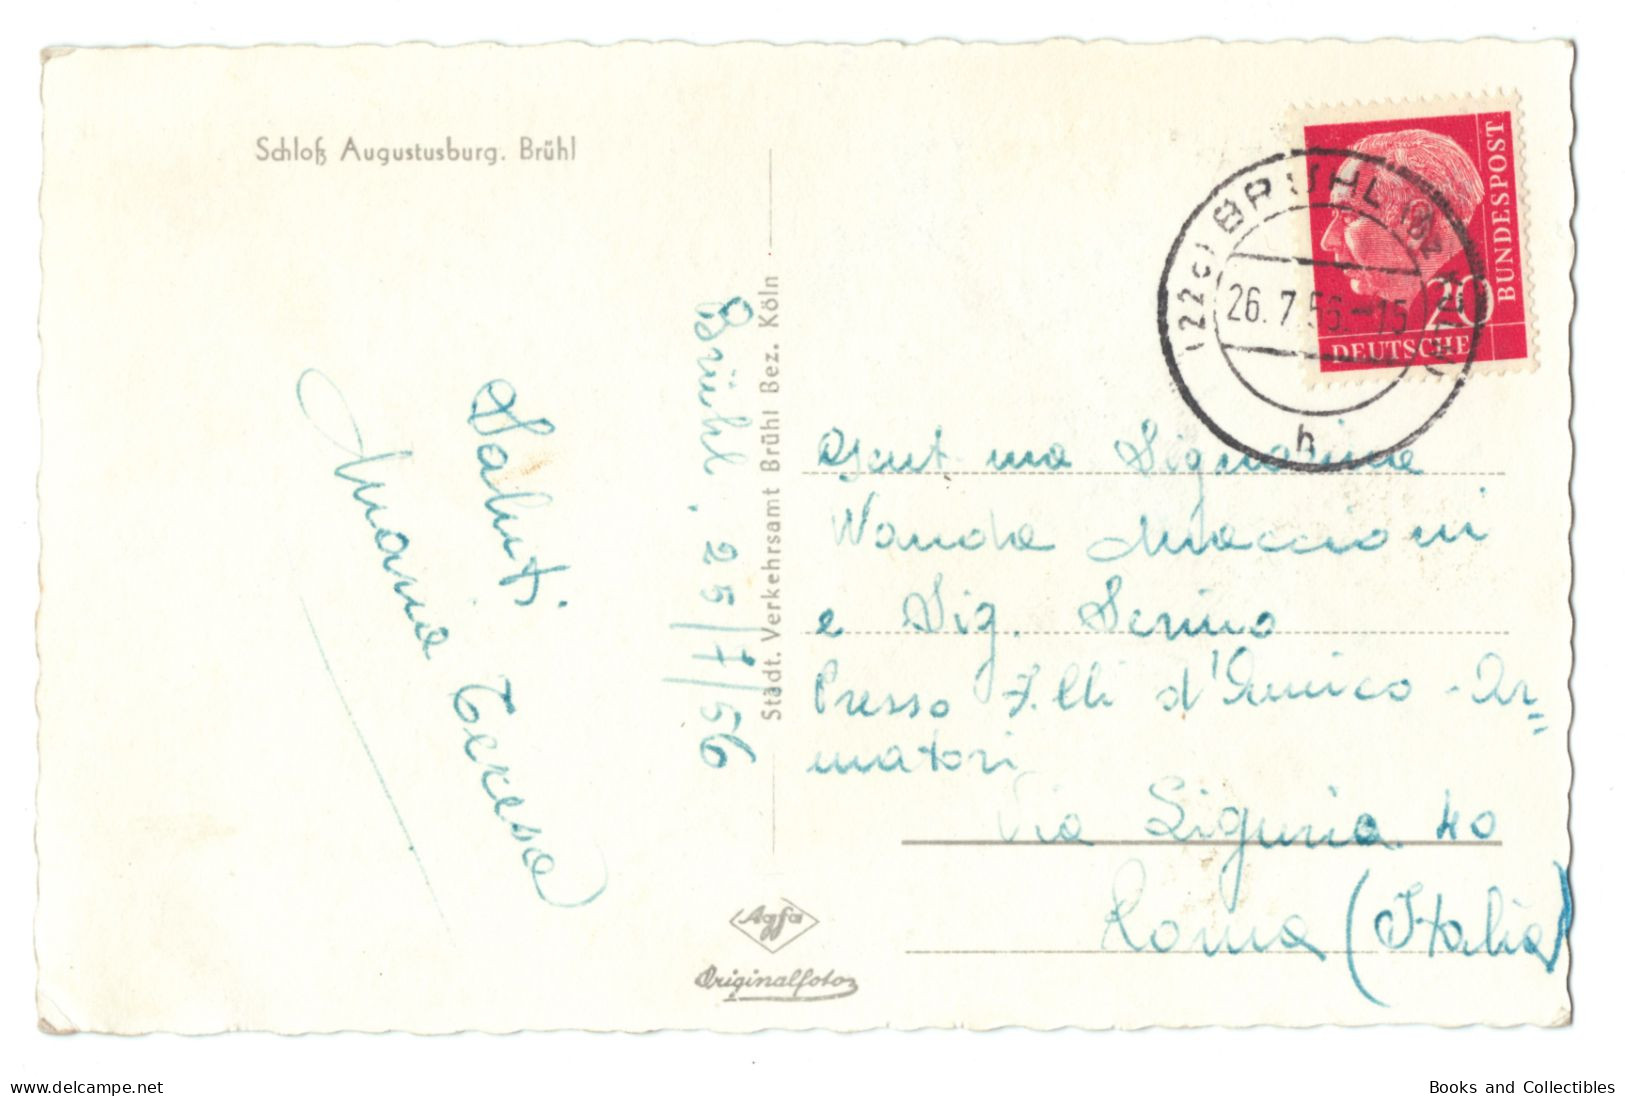 Schloß Augustusburg. Brühl
Saluti
Maria Teresa
Brühl, 25/7/56
Städt. Verkehrsamt Brühl Bez. Köln
Agfa
Originalfoto
BUNDESPOST
20
DEUTSCHE
(22c) BRÜHL (BZ KÖLN)
26.7.56.-15
h
Gent.ma Signorina
Wanda Maccioni
e Sig. Serino
Presso F.lli d'Amico - Ar=
matori
Via Liguria 40
Roma (Italia)
delcampe.net
Books and Collectibles